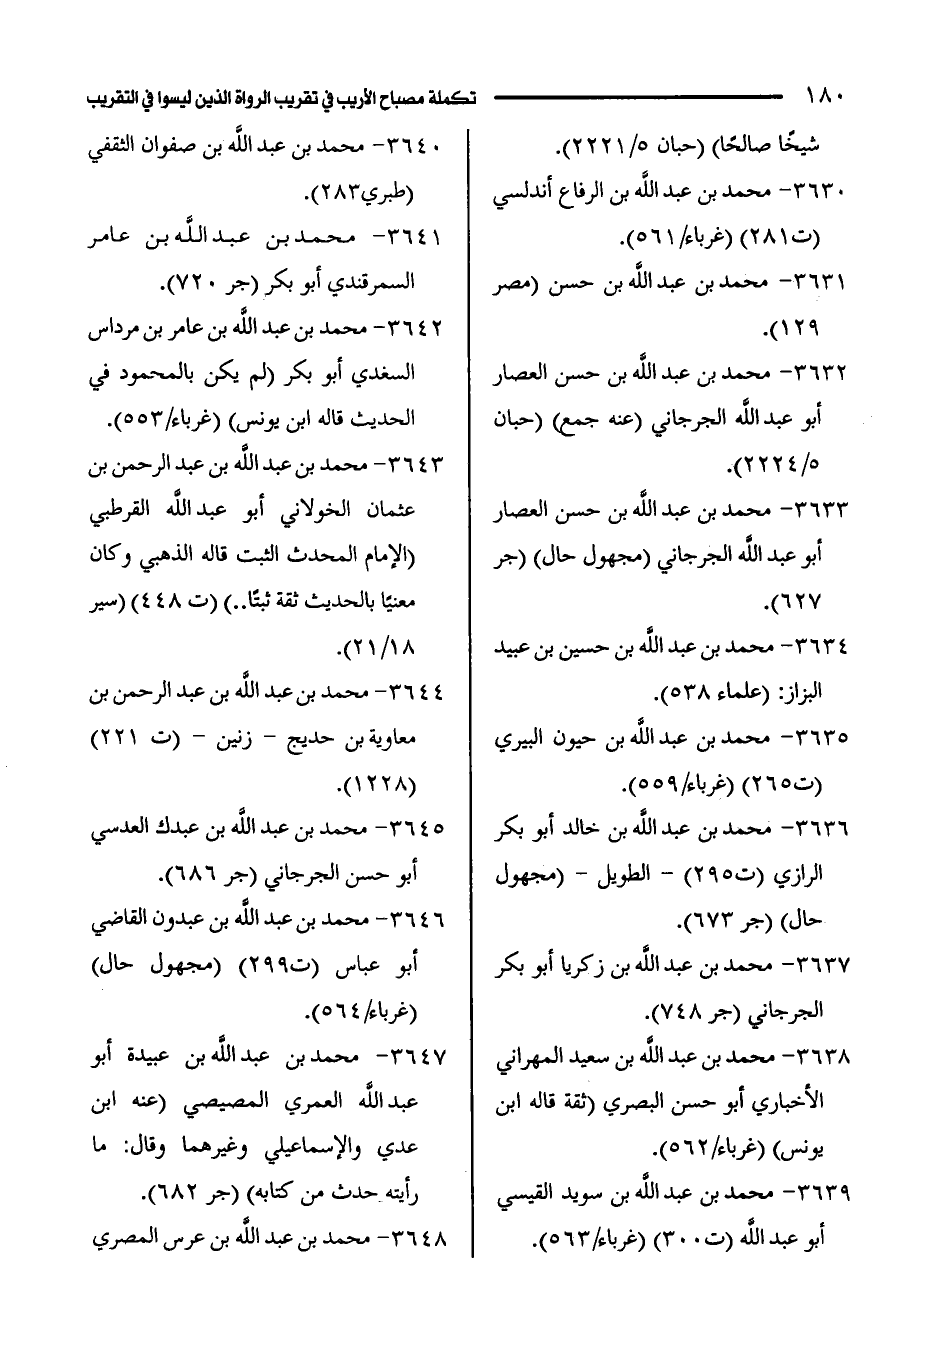 ١٨٠ تكملة مصباح الأريب في تقريب الرواة الذين ليسوا في التقريب
شيخًا صالحًا) (حبان ٢٢٢١/٥).
٣٦٣٠- محمد بن عبد اللَّه بن الرفاع أندلسي
(ت٢٨١) (غرباء/٥٦١).
٣٦٣١- محمد بن عبد اللَّه بن حسن (مصر
١٢٩).
٣٦٣٢- محمد بن عبد اللَّه بن حسن العصار
أبو عبد اللَّه الجرجاني (عنه جمع) (حبان
٢٢٢٤/٥).
٣٦٣٣- محمد بن عبد اللَّه بن حسن العصار
أبو عبد اللَّه الجرجاني (مجهول حال) (جر
٦٢٧).
٣٦٣٤- محمد بن عبد اللَّه بن حسين بن عبيد
البزاز: (علماء ٥٣٨).
٣٦٣٥- محمد بن عبد اللَّه بن حيون البيري
(ت٢٦٥) (غرباء/٥٥٩).
٣٦٣٦- محمد بن عبد اللَّه بن خالد أبو بكر
الرازي (ت٢٩٥) - الطويل - (مجهول
حال) (جر ٦٧٣).
٣٦٣٧- محمد بن عبد اللَّه بن زكريا أبو بكر
الجرجاني (جر ٧٤٨).
٣٦٣٨- محمد بن عبد اللَّه بن سعيد المهراني
الأخباري أبو حسن البصري (ثقة قاله ابن
يونس) (غرباء/٥٦٢).
٣٦٣٩- محمد بن عبد اللَّه بن سويد القيسي
أبو عبد اللَّه (ت٣٠٠) (غرباء/٥٦٣).
٣٦٤٠- محمد بن عبد اللَّه بن صفوان الثقفي
(طبري٢٨٣).
٣٦٤١- محمد بن عبد اللَّه بن عامر
السمرقندي أبو بكر (جر ٧٢٠).
٣٦٤٢- محمد بن عبد اللَّه بن عامر بن مرداس
السغدي أبو بكر (لم يكن بالمحمود في
الحديث قاله ابن يونس) (غرباء/٥٥٣).
٣٦٤٣- محمد بن عبد اللَّه بن عبد الرحمن بن
عثمان الخولاني أبو عبد اللَّه القرطبي
(الإمام المحدث الثبت قاله الذهبي وكان
معنيًا بالحديث ثقة ثبتًا..) (ت ٤٤٨) (سير
٢١/١٨).
٣٦٤٤- محمد بن عبد اللَّه بن عبد الرحمن بن
معاوية بن حديج - زنين - (ت ٢٢١)
(١٢٢٨).
٣٦٤٥- محمد بن عبد اللَّه بن عبدك العدسي
أبو حسن الجرجاني (جر ٦٨٦).
٣٦٤٦- محمد بن عبد اللَّه بن عبدون القاضي
أبو عباس (ت٢٩٩) (مجهول حال)
(غرباء/٥٦٤).
٣٦٤٧- محمد بن عبد اللَّه بن عبيدة أبو
عبد اللَّه العمري المصيصي (عنه ابن
عدي والإسماعيلي وغيرهما وقال: ما
رأيته حدث من كتابه) (جر ٦٨٢).
٣٦٤٨- محمد بن عبد اللَّه بن عرس المصري